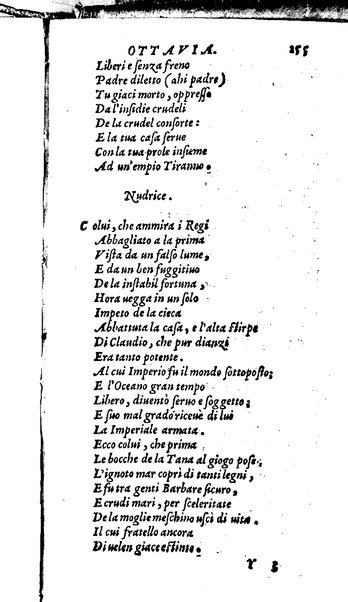 OTTAVIA. 255
Liberi e ſenza freno
Padre diletto (ahi padre)
Tu giaci morto, oppreſſo
Da l'inſidie crudeli
De la crudel conſorte:
E la tua caſa ſerue
Con la tua prole inſieme
Ad un'empio Tiranno.
Nudrice.
Colui, che ammira i Regi
Abbagliato a la prima
Viſta da un falſo lume,
E da un ben fuggitiuo
De la inſtabil fortuna,
Hora uegga in un ſolo
Impeto de la cieca
Abbattuta la caſa, e l'alta ſtirpe
Di Claudio, che pur dianzi
Era tanto potente.
Al cui Imperio fu il mondo ſottopoſto;
E l'Oceano gran tempo
Libero, diuentò ſeruo e ſoggetto;
E ſuo mal grado riceuè di lui
La Imperiale armata.
Ecco colui, che prima
Le bocche de la Tana al giogo poſe.
L'ignoto mar coprì di tanti legni,
E fu tra genti Barbare ſicuro,
E crudi mari, per ſceleritate
De la moglie meſchino uſcì di uita.
Il cui fratello ancora
Di uelen giace eſtinto.
Y 3